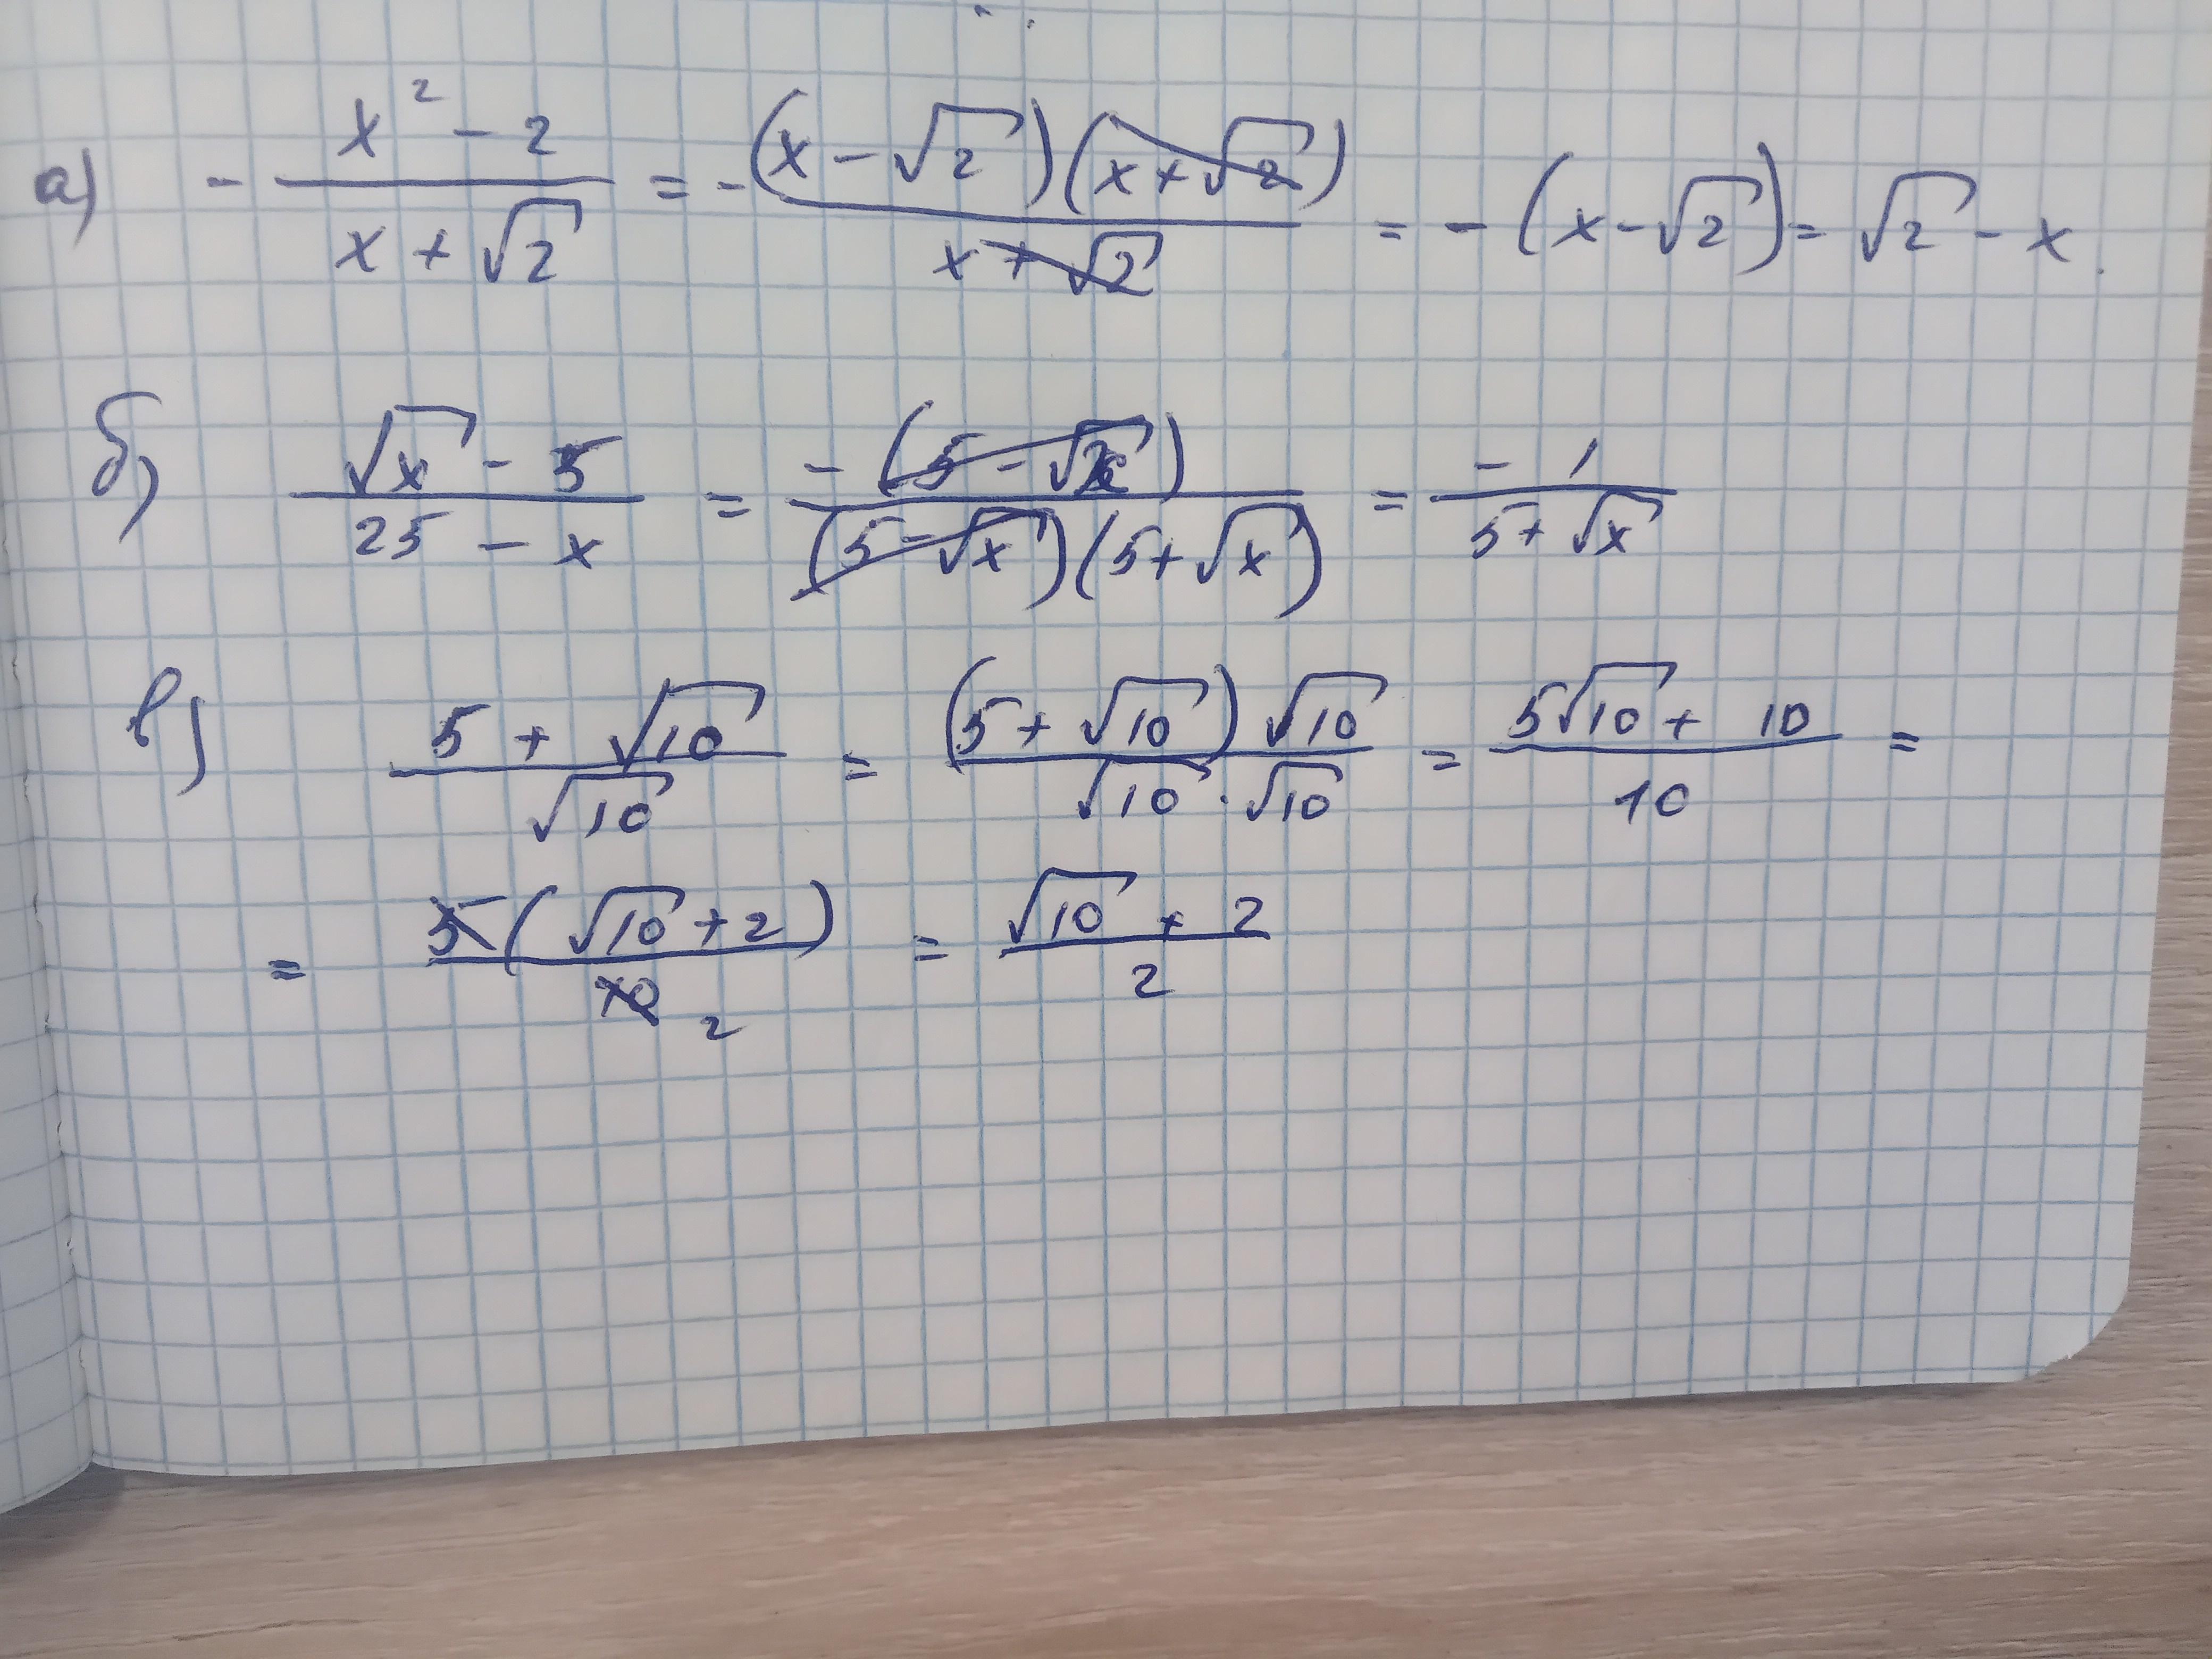 а) - (x² - 2)/(x + √2) = - (x - √2)(x + √2)/(x + √2) = - (x - √2) = √2 - x.
б) (√x - 5)/(25 - x) = -(5 - √x)/((5 - √x)(5 + √x)) = -1/(5 + √x)
в) (5 + √10)/√10 = (5 + √10)√10/(√10 · √10) = (5√10 + 10)/10 =
= 5(√10 + 2)/10 2 = (√10 + 2)/2